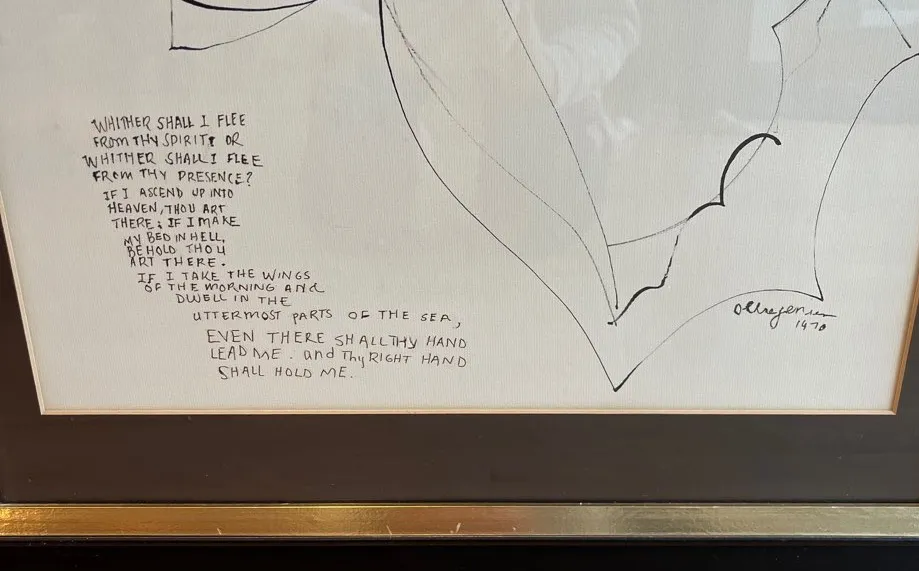 WHITHER SHALL I FLEE
FROM THY SPIRIT? OR
WHITHER SHALL I FLEE
FROM THY PRESENCE?
IF I ASCEND UP INTO
HEAVEN, THOU ART
THERE; IF I MAKE
MY BED IN HELL,
BEHOLD THOU
ART THERE.
IF I TAKE THE WINGS
OF THE MORNING and
DWELL IN THE
UTTERMOST PARTS OF THE SEA,
EVEN THERE SHALL THY HAND
LEAD ME. and Thy RIGHT HAND
SHALL HOLD ME.
1970